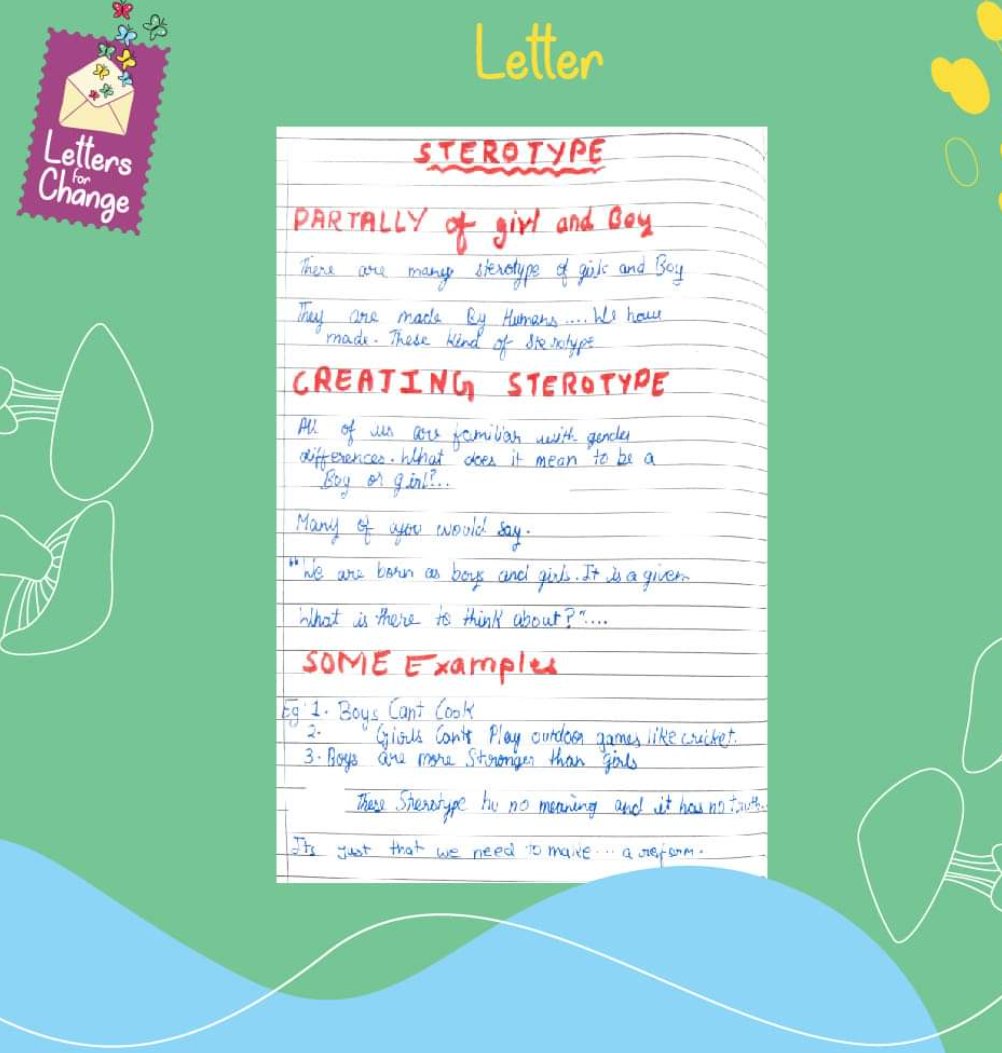 Letter
Letters
for
Change
STEROTYPE
PARTALLY of girl and Boy
There are many sterotype of girls and Boy
They are made By Humans .... We have
made. These kind of Sterotype
CREATING STEROTYPE
All of us are familiar with gender
differences. What does it mean to be a
Boy or girl?..
Many of you would say.
"We are born as boys and girls. It is a given
What is there to think about?"....
SOME Examples
Eg: 1. Boys Cant Cook
2. Girls Cant Play outdoor games like cricket.
3. Boys are more Stronger than girls
These Sterotype no meaning and it has no truth.
Its just that we need to make ... a reform.